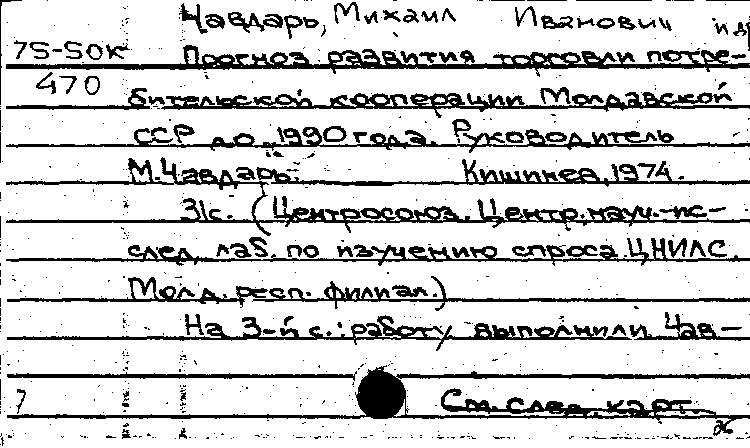 Чавдарь, Михаил Иванович и др
75-50к Прогноз развития торговли потре-
470 бительской кооперации Молдавской
ССР до 1990 года. Руководитель
М. Чавдарь. Кишинев, 1974.
31с. (Центросоюз. Центр. науч.-ис-
след. лаб. по изучению спроса ЦНИЛС.
Молд. респ. филиал.)
На 3-й с.: работу выполнили Чав-
7 См. след. карт.